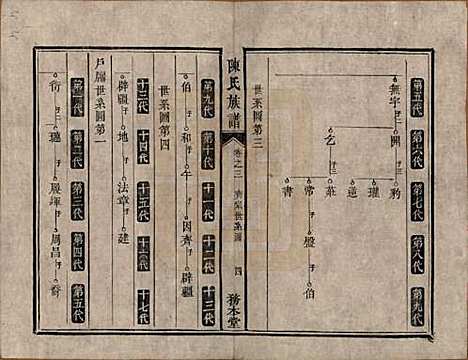 第五代 第六代 第七代 第八代 第九代
無宇 子 開 子 豹
瓘
逆
乞 子 莊
常 子 盤 子 伯
書
世系圖第三
陳氏族譜 卷之三 世系圖 四 務本堂
第九代 第十代 十一代 十二代 十三代
伯 子 和 子 午 子 因齊 子 辟疆
世系圖第四
十三代 十四代 十五代 十六代 十七代
辟疆 子 地 子 法章 子 建
戶屬世系圖第一
第一代 第二代 第三代 第四代 第五代
衍 子 穗 子 殿暉 子 周昌 子 裔